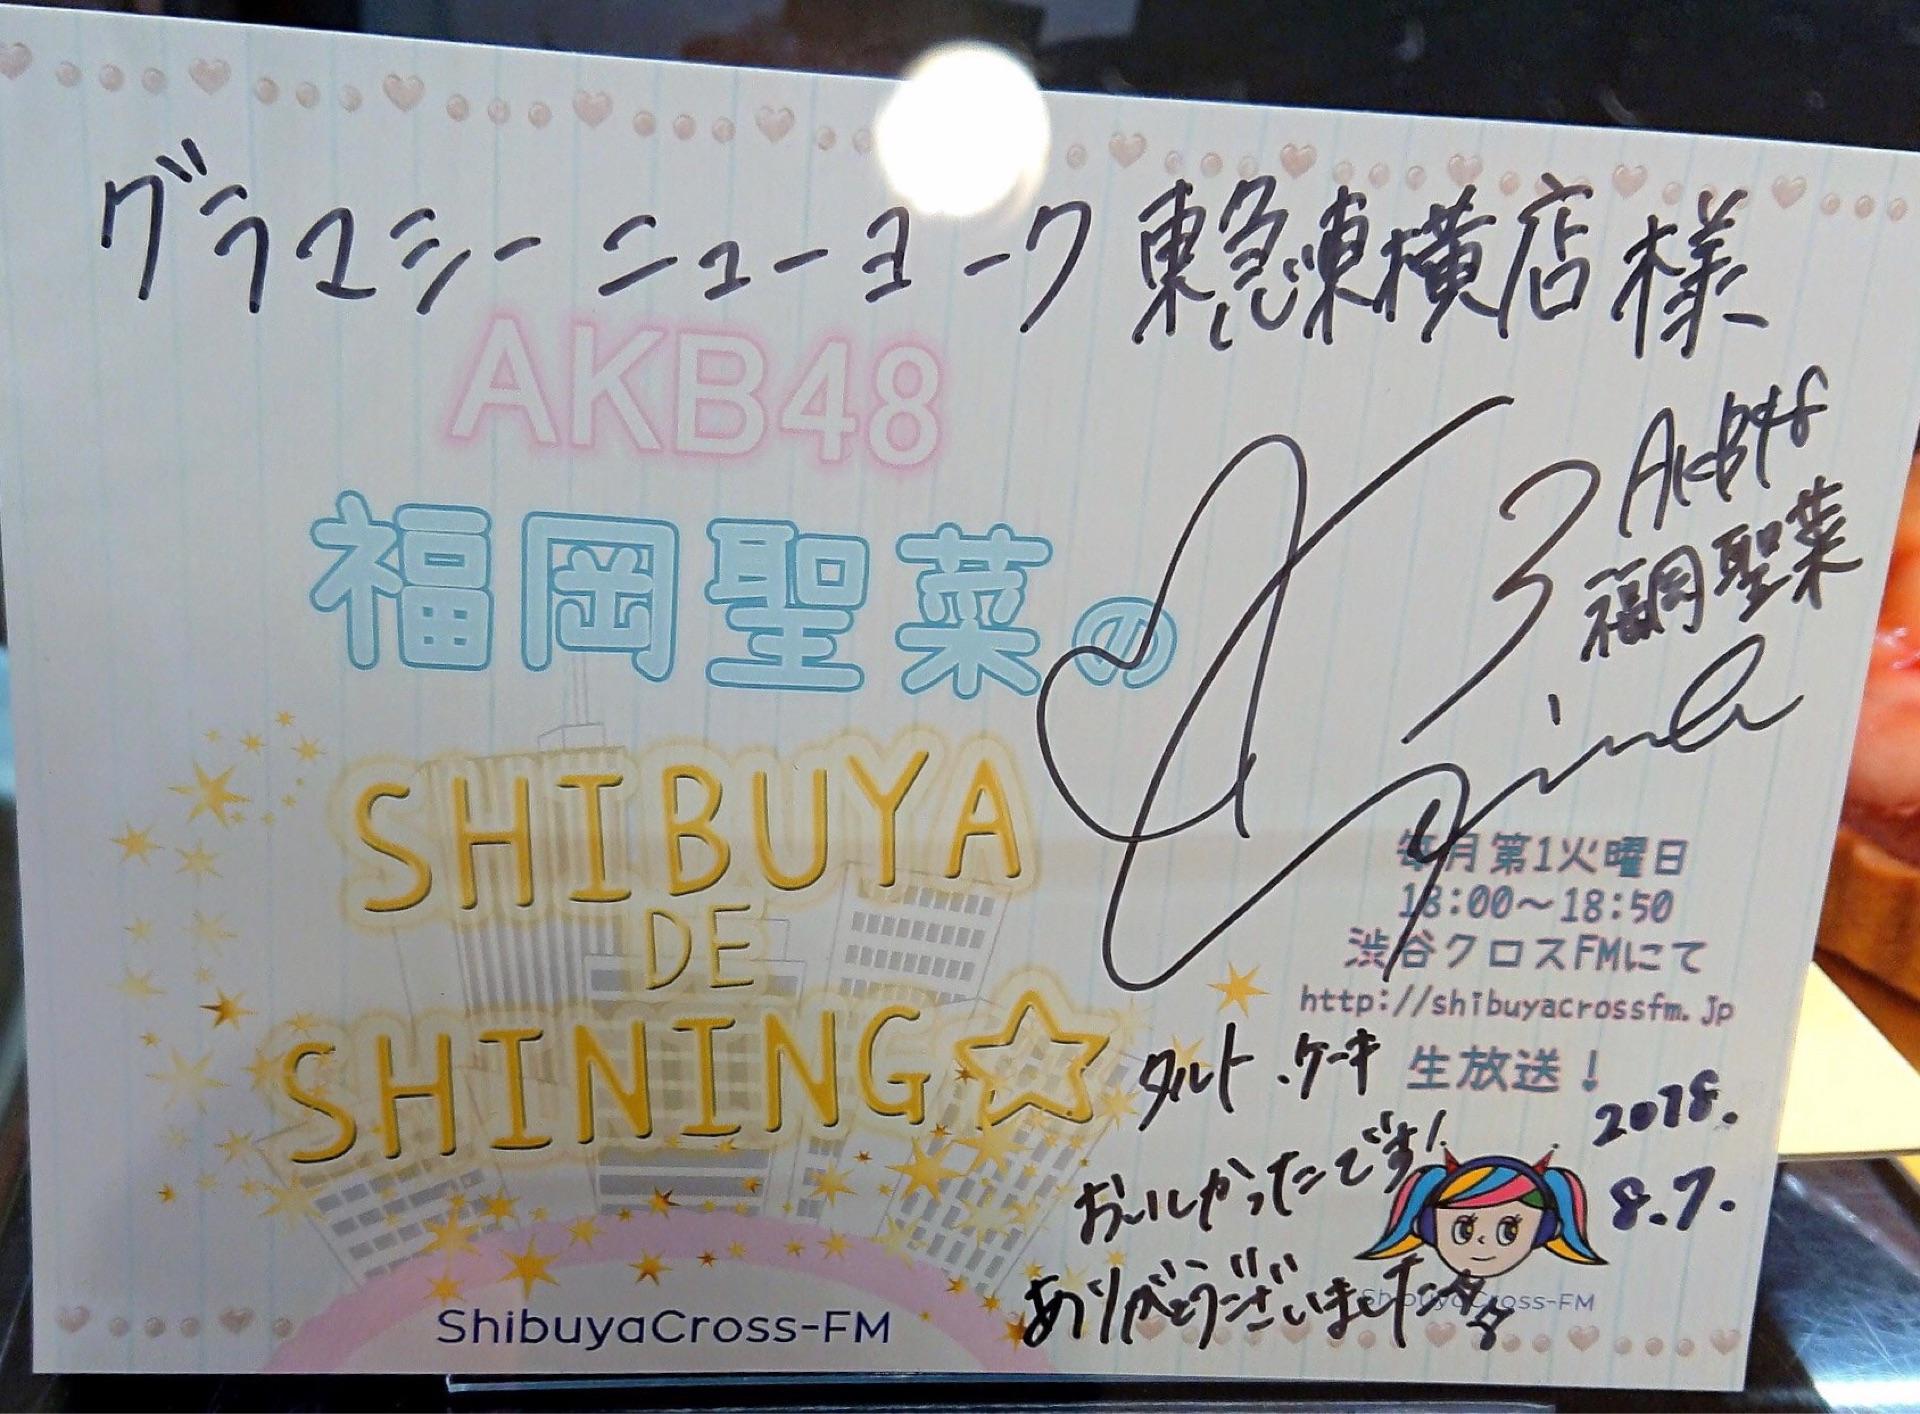 グラマシーニューヨーク 東急東横店 様
AKB48
AKB48
福岡聖菜
福岡聖菜の
SHIBUYA
DE
SHINING☆
毎月第1火曜日
18:00～18:50
渋谷クロスFMにて
http://shibuyacrossfm.jp
生放送！
タルト.ケーキ
おいしかったです!
ありがとうございました
2018.
8.7.
ShibuyaCross-FM
ShibuyaCross-FM